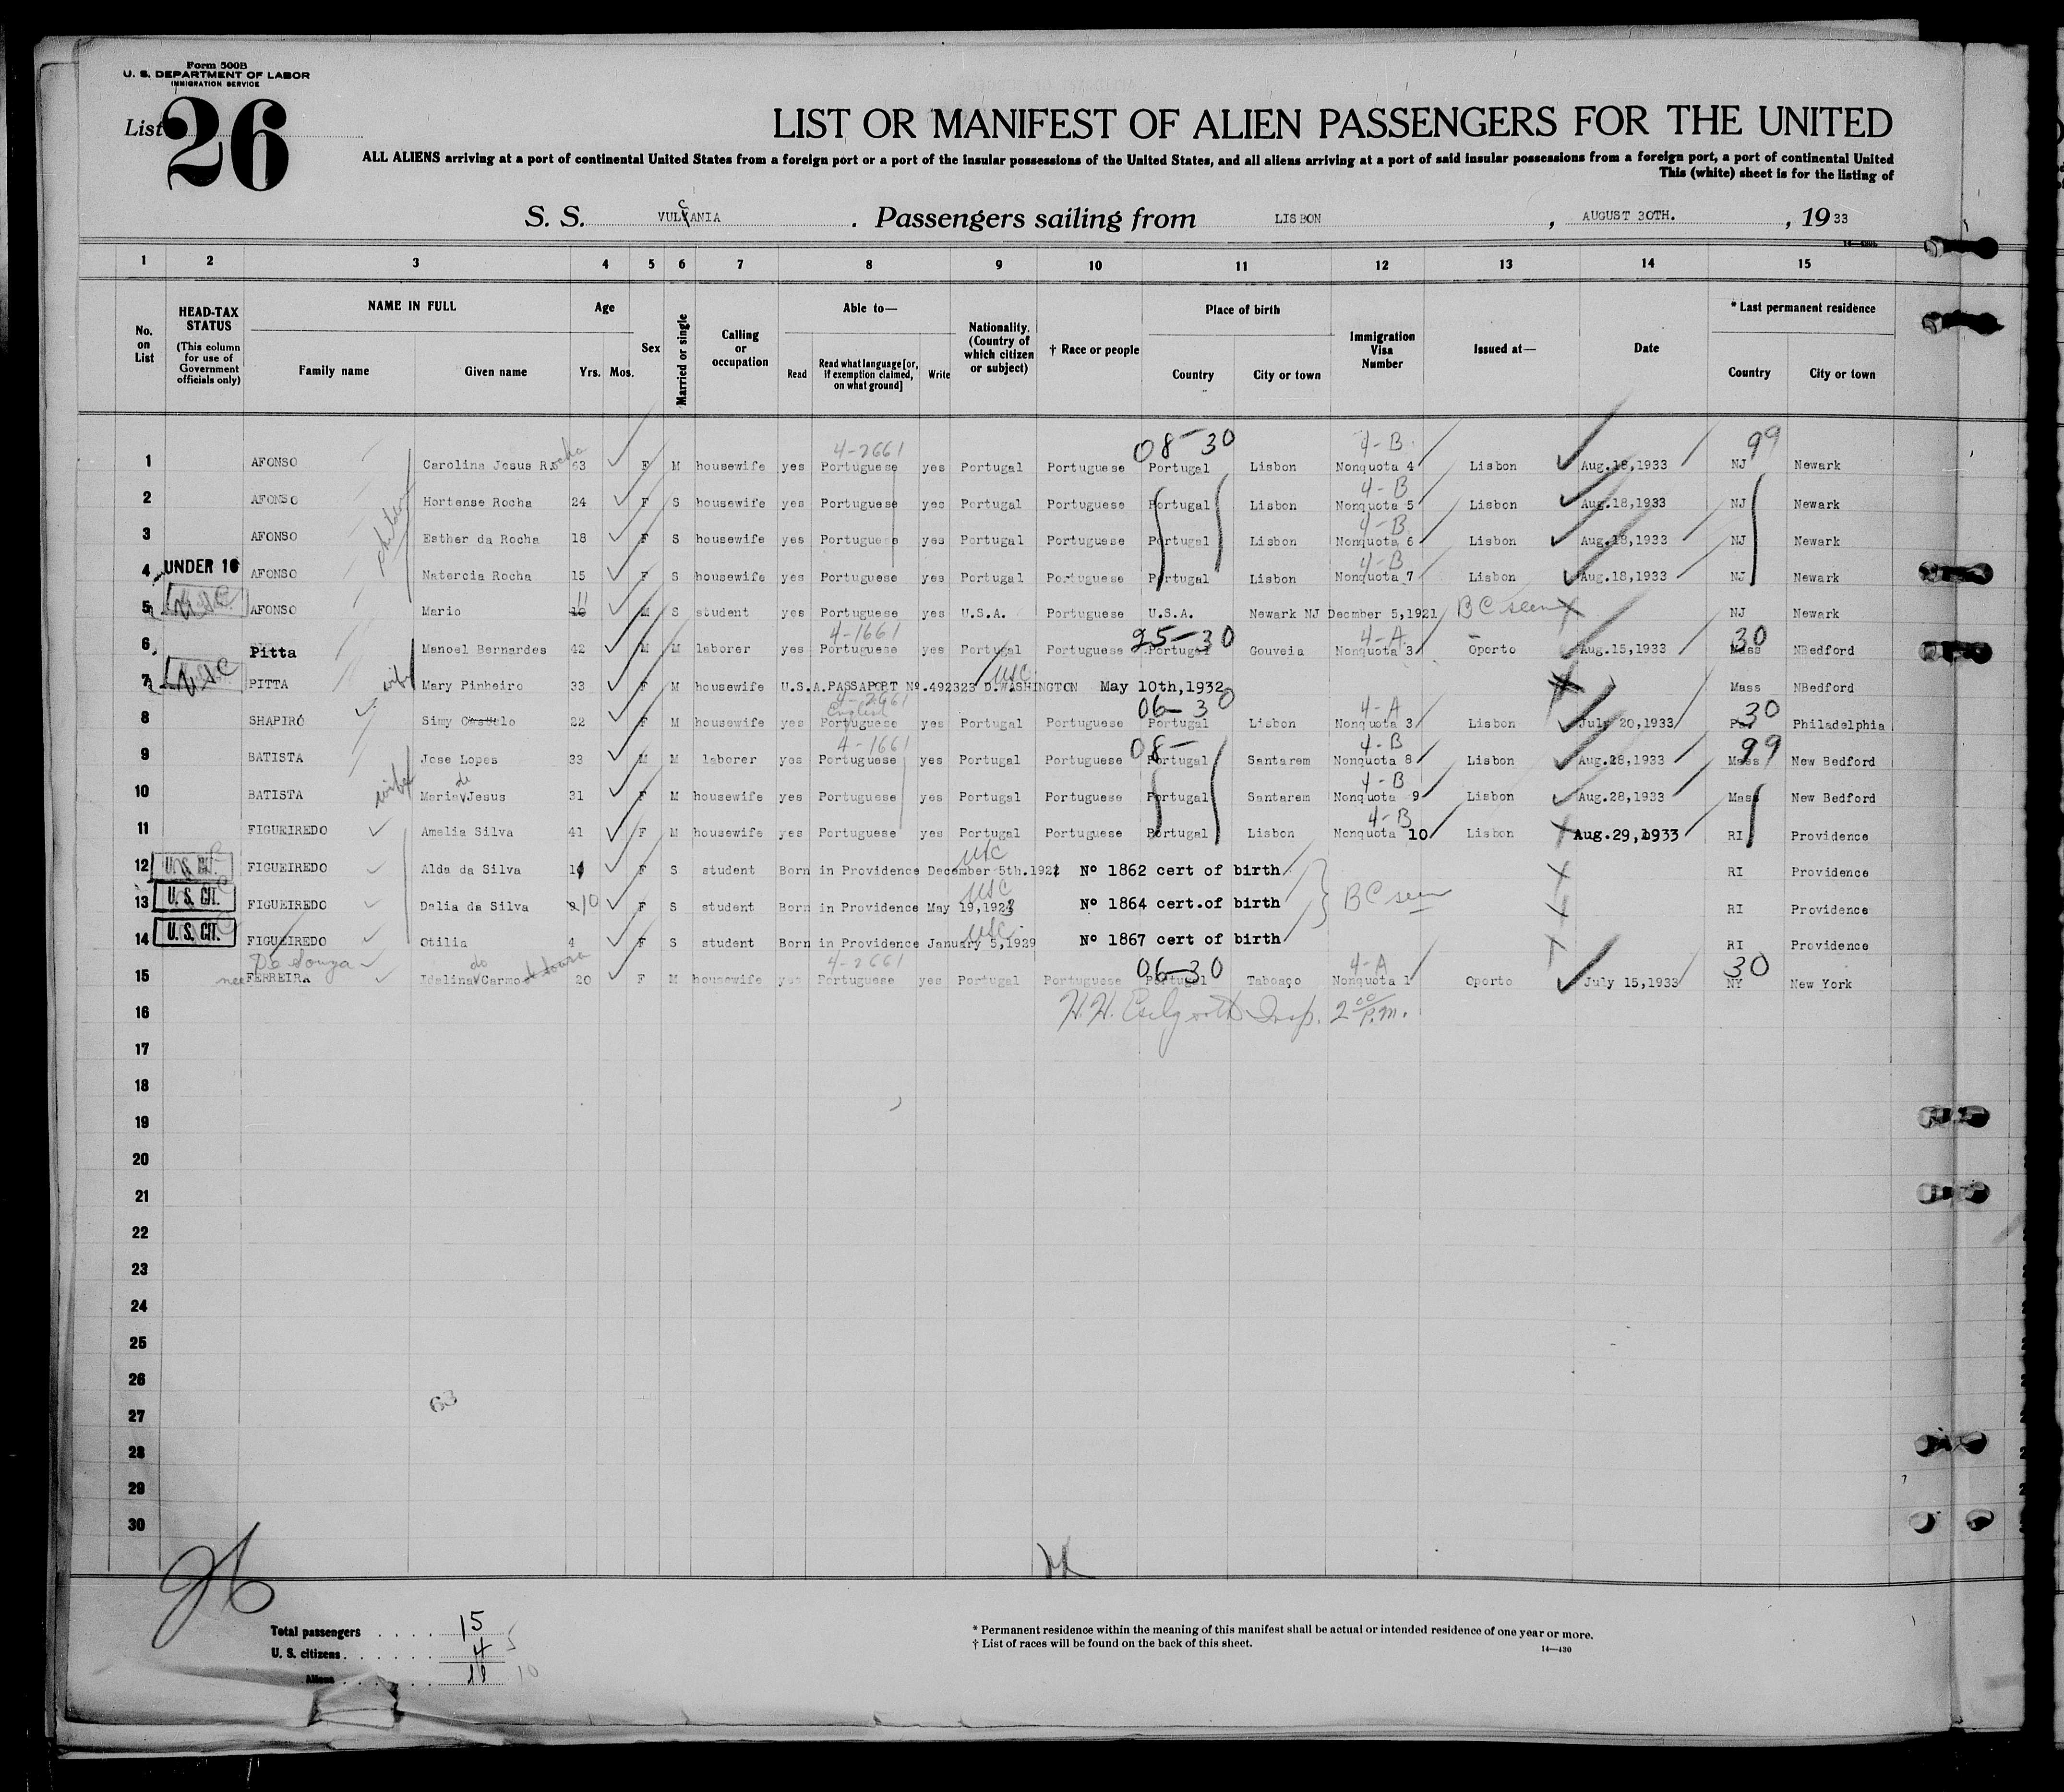 Form 500B
U. S. DEPARTMENT OF LABOR
IMMIGRATION SERVICE
List 26
LIST OR MANIFEST OF ALIEN PASSENGERS FOR THE UNITED
ALL ALIENS arriving at a port of continental United States from a foreign port or a port of the insular possessions of the United States, and all aliens arriving at a port of said insular possessions from a foreign port, a port of continental United
This (white) sheet is for the listing of
S. S. VULCANIA . Passengers sailing from LISBON , AUGUST 30TH. , 1933
1 2 3 4 5 6 7 8 9 10 11 12 13 14 15
No. on List
HEAD-TAX STATUS
(This column for use of Government officials only)
NAME IN FULL
Family name Given name
Age
Yrs. Mos.
Sex
Married or single
Calling or occupation
Able to—
Read Read what language [or, if exemption claimed, on what ground] Write
Nationality. (Country of which citizen or subject)
† Race or people
Place of birth
Country City or town
Immigration Visa Number
Issued at—
Date
* Last permanent residence
Country City or town
4-2661 08-30 4-B 99
1 AFONSO Carolina Jesus Rocha 63 F M housewife yes Portuguese yes Portugal Portuguese Portugal Lisbon Nonquota 4 Lisbon Aug.18,1933 NJ Newark
4-B
2 AFONSO Hortense Rocha 24 F S housewife yes Portuguese yes Portugal Portuguese Portugal Lisbon Nonquota 5 Lisbon Aug.18,1933 NJ Newark
4-B
3 AFONSO Esther da Rocha 18 F S housewife yes Portuguese yes Portugal Portuguese Portugal Lisbon Nonquota 6 Lisbon Aug.18,1933 NJ Newark
4-B
4 UNDER 16 AFONSO Natercia Rocha 15 F S housewife yes Portuguese yes Portugal Portuguese Portugal Lisbon Nonquota 7 Lisbon Aug.18,1933 NJ Newark
5 USC AFONSO Mario 11 M S student yes Portuguese yes U.S.A. Portuguese U.S.A. Newark NJ Decmber 5,1921 BC seen NJ Newark
4-1661 25-30 4-A 30
6 Pitta Manoel Bernardes 42 M M laborer yes Portuguese yes Portugal Portuguese Portugal Gouveia Nonquota 3 Oporto Aug.15,1933 Mass NBedford
USC
7 USC PITTA wife Mary Pinheiro 33 F M housewife U.S.A.PASSAPORT Nº.492323 D.WASHINGTON May 10th,1932 Mass NBedford
4-2661 English 06-30 4-A 30
8 SHAPIRÓ Simy 22 F M housewife yes Portuguese yes Portugal Portuguese Portugal Lisbon Nonquota 3 Lisbon July 20,1933 Philadelphia
4-1661 08- 4-B 99
9 BATISTA Jose Lopes 33 M M laborer yes Portuguese yes Portugal Portuguese Portugal Santarem Nonquota 8 Lisbon Aug.28,1933 Mass New Bedford
4-B
10 BATISTA wife Maria de Jesus 31 F M housewife yes Portuguese yes Portugal Portuguese Portugal Santarem Nonquota 9 Lisbon Aug.28,1933 Mass New Bedford
4-B
11 FIGUEIREDO Amelia Silva 41 F M housewife yes Portuguese yes Portugal Portuguese Portugal Lisbon Nonquota 10 Lisbon Aug.29,1933 RI Providence
USC
12 U.S. CIT. FIGUEIREDO Alda da Silva 11 F S student Born in Providence December 5th.1921 Nº 1862 cert of birth RI Providence
USC
13 U.S. CIT. FIGUEIREDO Dalia da Silva 10 F S student Born in Providence May 19,1923 Nº 1864 cert.of birth BC seen RI Providence
USC
14 U.S. CIT. FIGUEIREDO Otilia 4 F S student Born in Providence January 5,1929 Nº 1867 cert of birth RI Providence
De Souza do de Souza 4-2661 06-30 4-A 30
15 nee FERREIRA Idalina Carmo 20 F M housewife yes Portuguese yes Portugal Portuguese Portugal Taboaço Nonquota 1 Oporto July 15,1933 NY New York
16 H.H. Insp. 2 00 P.M.
17
18
19
20
21
22
23
24
25
26
27 63
28
29
30
Total passengers . . . . 15
U. S. citizens . . . . . . 4 5
Aliens . . . . . . 11 10
* Permanent residence within the meaning of this manifest shall be actual or intended residence of one year or more.
† List of races will be found on the back of this sheet.
14—430